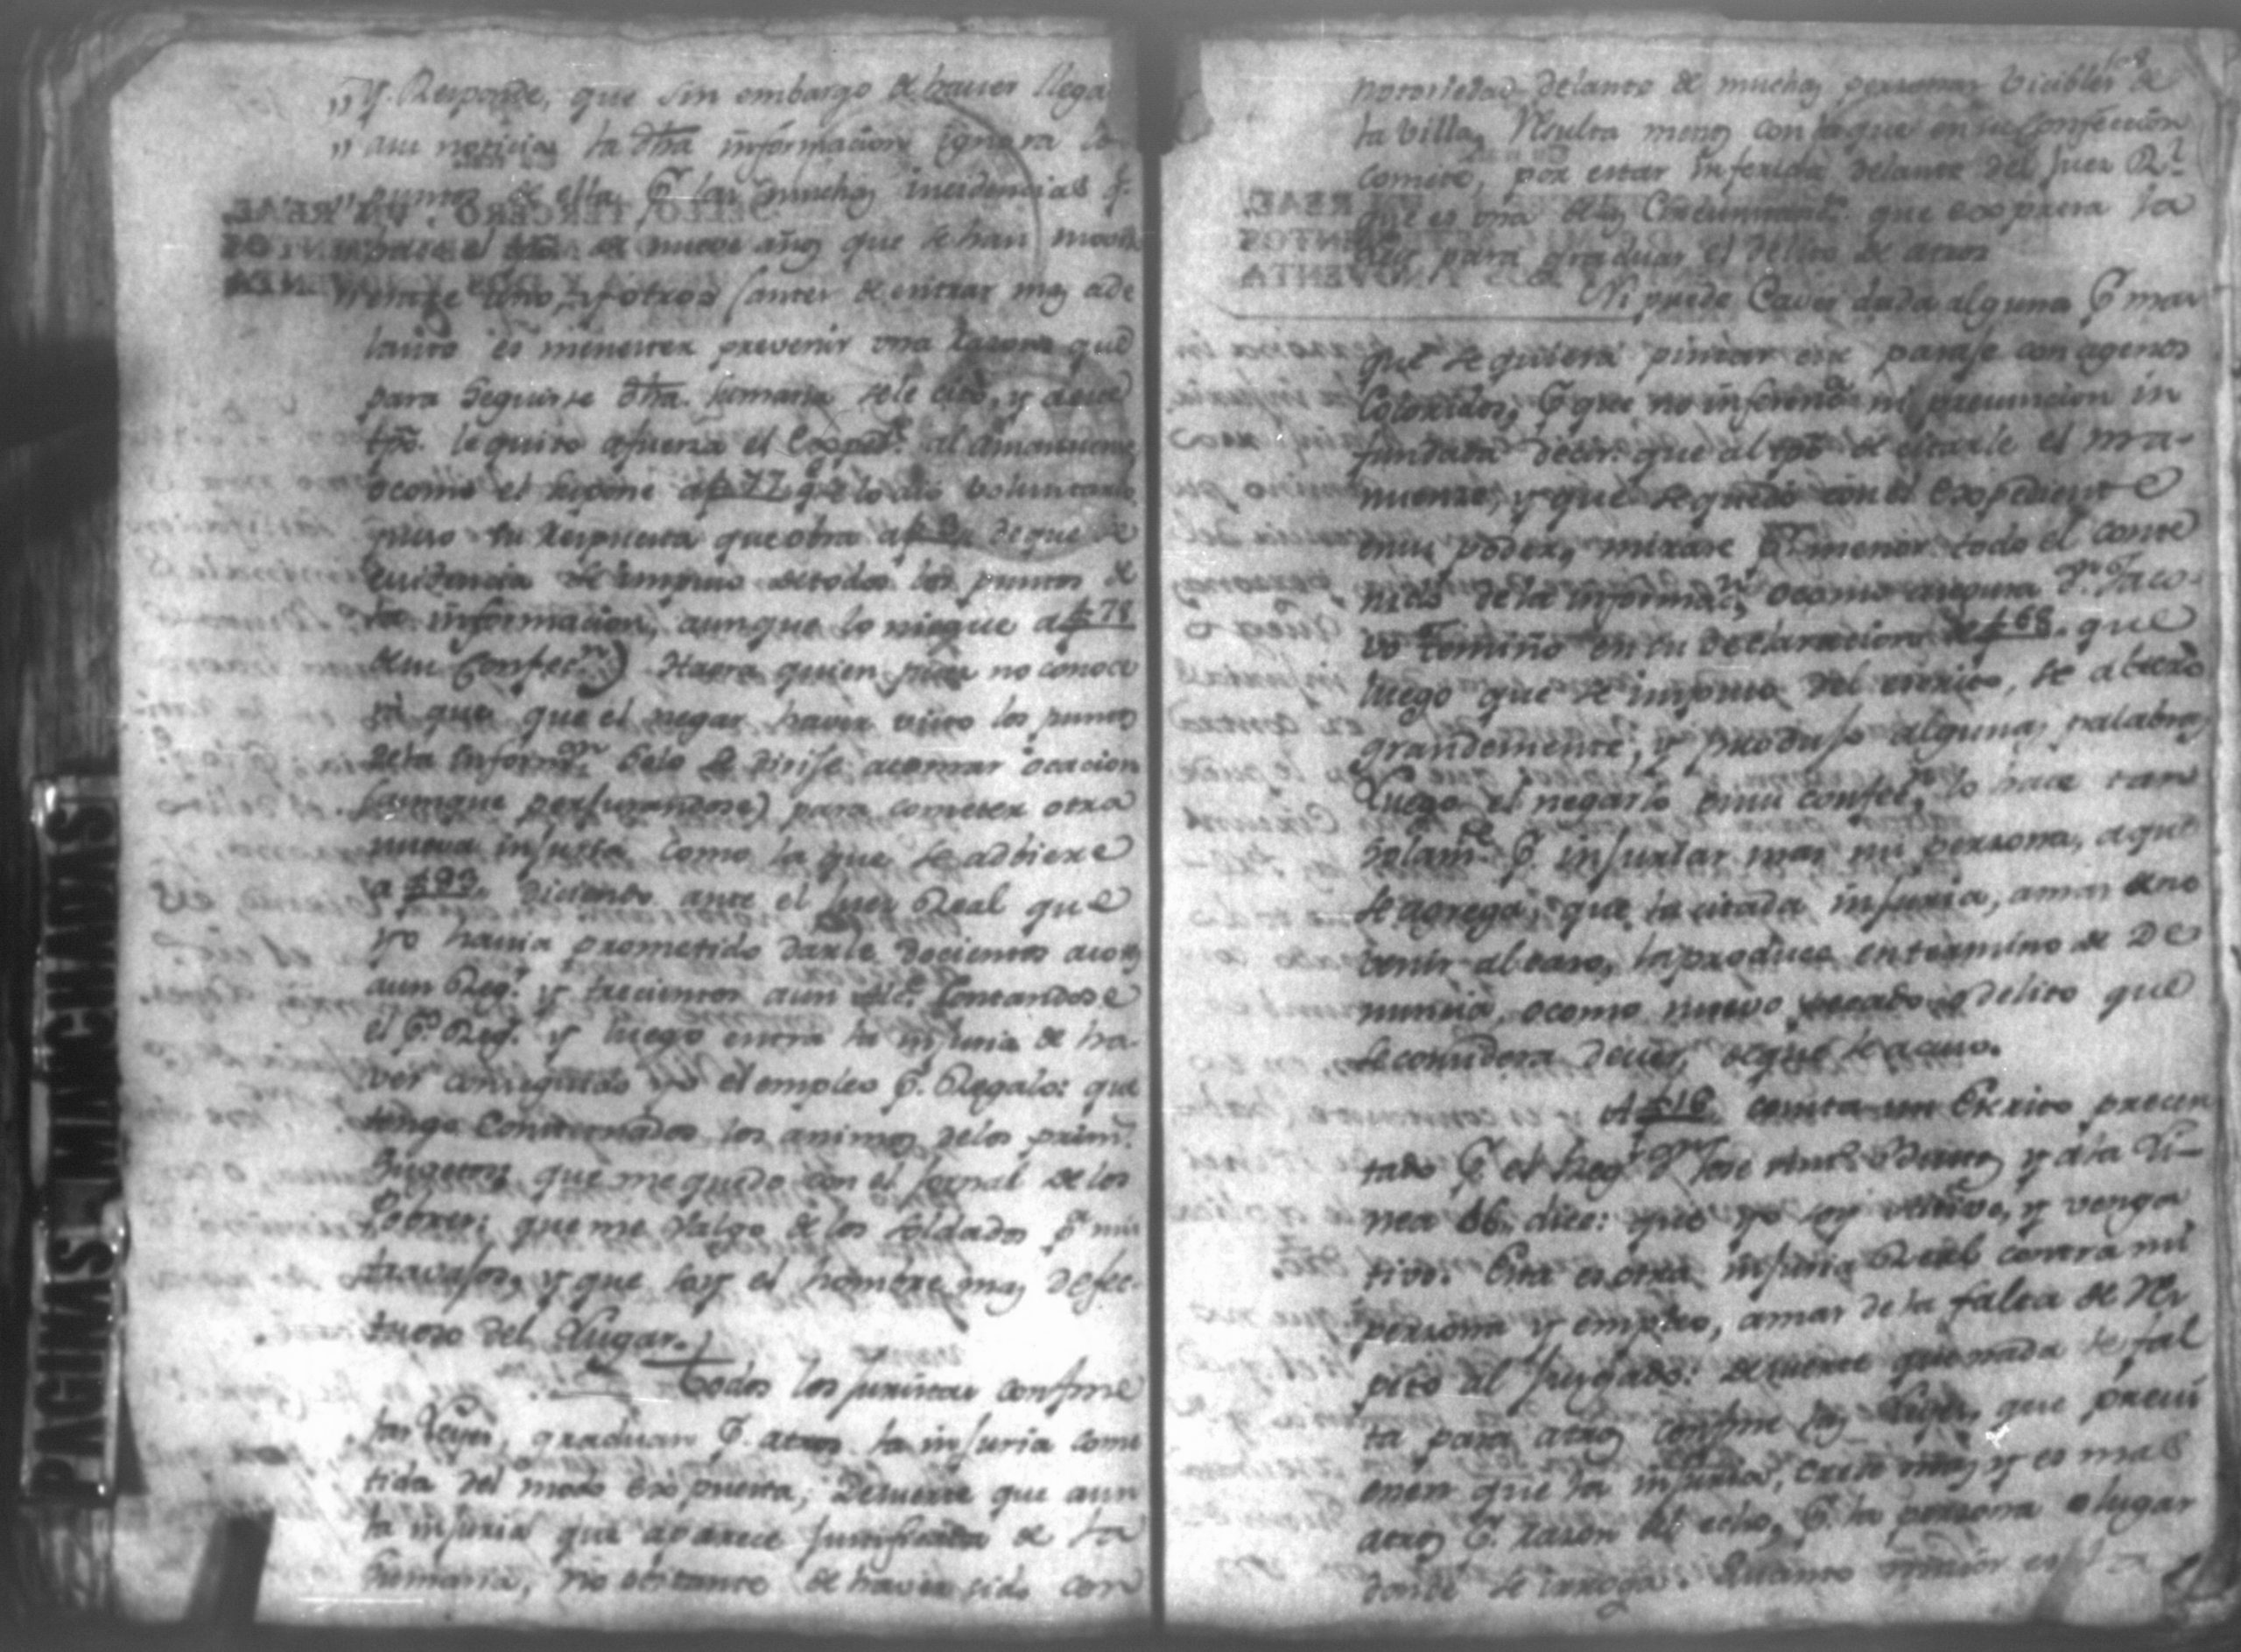 „ q.e Responde, que sin embargo de haver llega
„ asu noticia la dha información ignora lo
„ puntos de ella, p.r las muchas incidencias q.
„ pasa el de nueve años que se han movi
entre uno, y otros (antes de entrar mas ade
lante es menester prevenir una razon que
para seguirse dha sumaria sele cito, y aeste
tpõ. le quito afuerza el Exped.te al Amanuense
ocomo el supone af. 77 q.e lo dio voluntario
puso su respuesta que obra af. de que
evidencia se impuso detodos los puntos de
la información, aunque lo niegue af. 78
desu Confec.n) Haora quien pues no conoce
rá que que el negar haver visto los puntos
dela Inform.on solo se dirije atomar ocacion
(aunque perjurandose) para cometer otra
nueva injusta como la que se adbierte
a f. 93. diciendo ante el Juez Real que
yo havia prometido darle docientos azotes
aun Reg.r y trecientos aun Alc.e Contandose
el p.r Reg.r y luego entra la injuria de ha
ver conseguido yo el empleo p.r Regalo: que
tengo Consternados los animos delos prim.s
Sugetos, que me quedo con el jornal de los
Pobres; que me valgo de los soldados p.a mis
travajos, y que soy el hombre mas defec
tuoso del Lugar.
Todos los juristas confme
las Leyes, graduan p.r atroz la injuria come
tida del modo expuesta; desuerte que aun
la injuria que aparece justificada de la
sumaria, no obstante de haver sido con
notoriedad delante de muchas personas vicibles de
la villa, resulta menos con la que en su confeccion
comete, por estar inferida delante del Juez R.l
que es una delas Circunstanc.s que expresa la
Ley para graduar el delito de atroz
Ni puede Caver duda alguna p.r mas
que se quiera pintar este pasaje con agenos
Coloridos, p.r que no inferenc.a ni presuncion in
fundada decir: que al tpõ de citarle el ma-
nuense, y que se quedó con el Expediente
ensu poder, mirase p.r menor todo el conte
nido dela informac.n, ocomo asegura D.n Jaco-
vo Temiño en su declaracion de f. 68. que
luego que se impuso del escrito, se alteró
grandemente, y produjo algunas palabras
Luego el negarlo ensu confec.n lo hace tan
solam.te p.r injuriar mas mi persona, aque
se agrega, que la citada injuria, amas deno
venir alcaso, la produce entermino de De
nuncia, ocomo nuevo pecado o delito que
se considera dever, oque se acuso.
A f. 16. consta un Escrito presen
tado p.r el Reg.r D.n José y ala Li-
nea 16. dice: que yo soy altivo, y venga
tivo. Esta es otra injuria Real contra mi
persona y empleo, amas dela falta de Res
peto al Juzgado: desuerte que nada le fal
ta para atroz confme las Leyes, que previ
enen que la injuria, crece mas y es mas
atroz p.r razon del echo, p.r la persona o lugar
donde se irroga. Quanto